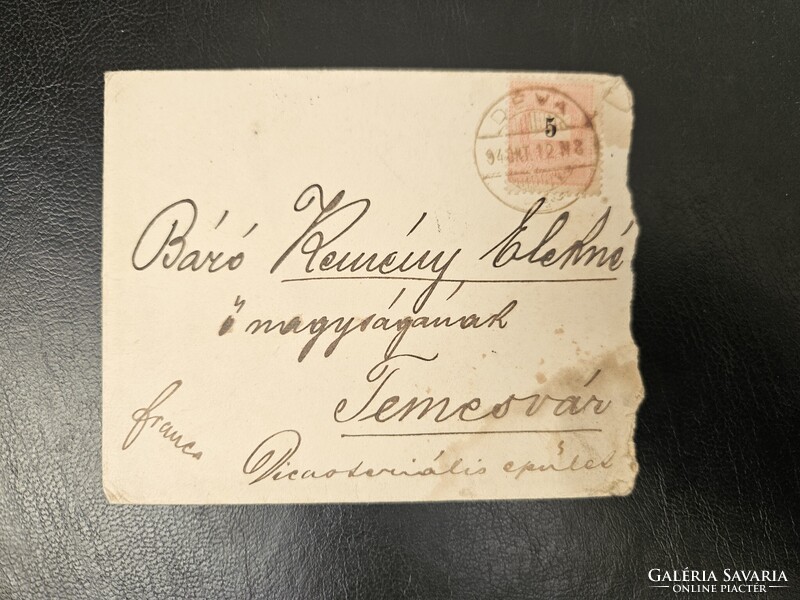 DÉVA
5
94 OKT. 12 N 8
Báró Kemény Elekné
ő nagyságának
Temesvár
franco
Dicasteriális épület
GALÉRIA SAVARIA
ONLINE PIACTÉR